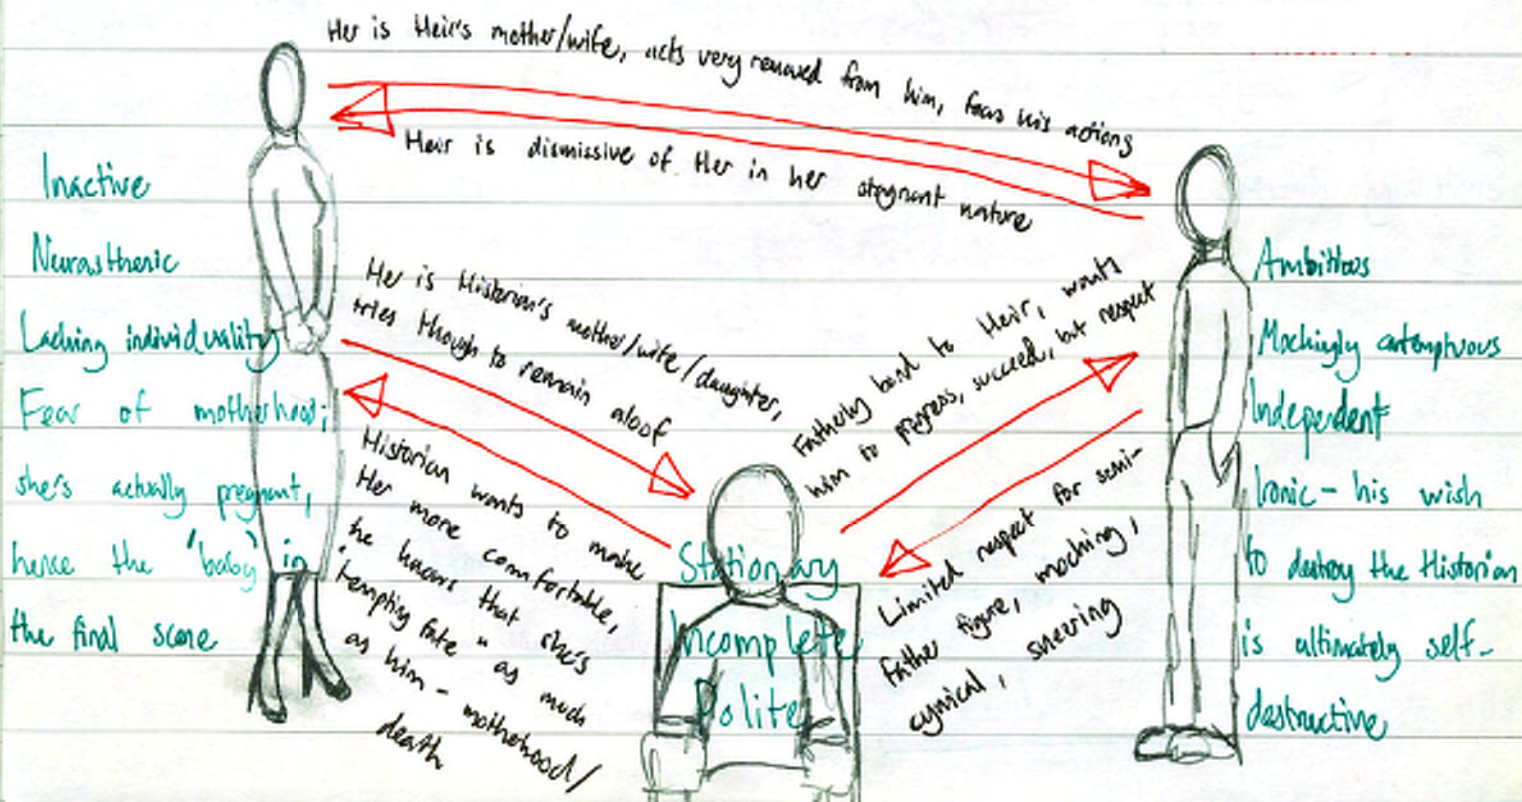 Her is Heir's mother/wife, acts very removed from him, his actions
Heir is dismissive of Her in her stagnant nature
Inactive
Neurasthenic
Lacking individuality
Fear of motherhood;
she's actually pregnant,
hence the 'baby' in
the final scene
Her is Historian's mother/wife/daughter,
tries though to remain aloof
Historian wants to make
Her more comfortable,
he knows that she's
"tempting fate" as much
as him - motherhood/
death
Fatherly bond to Heir, wants
him to progress, succeed, but respect
Limited respect for semi-
father figure, mocking,
cynical, sneering
Stationary
Incomplete
Polite
Ambitious
Mockingly contemptuous
Independent
Ironic - his wish
to destroy the Historian
is ultimately self-
destructive